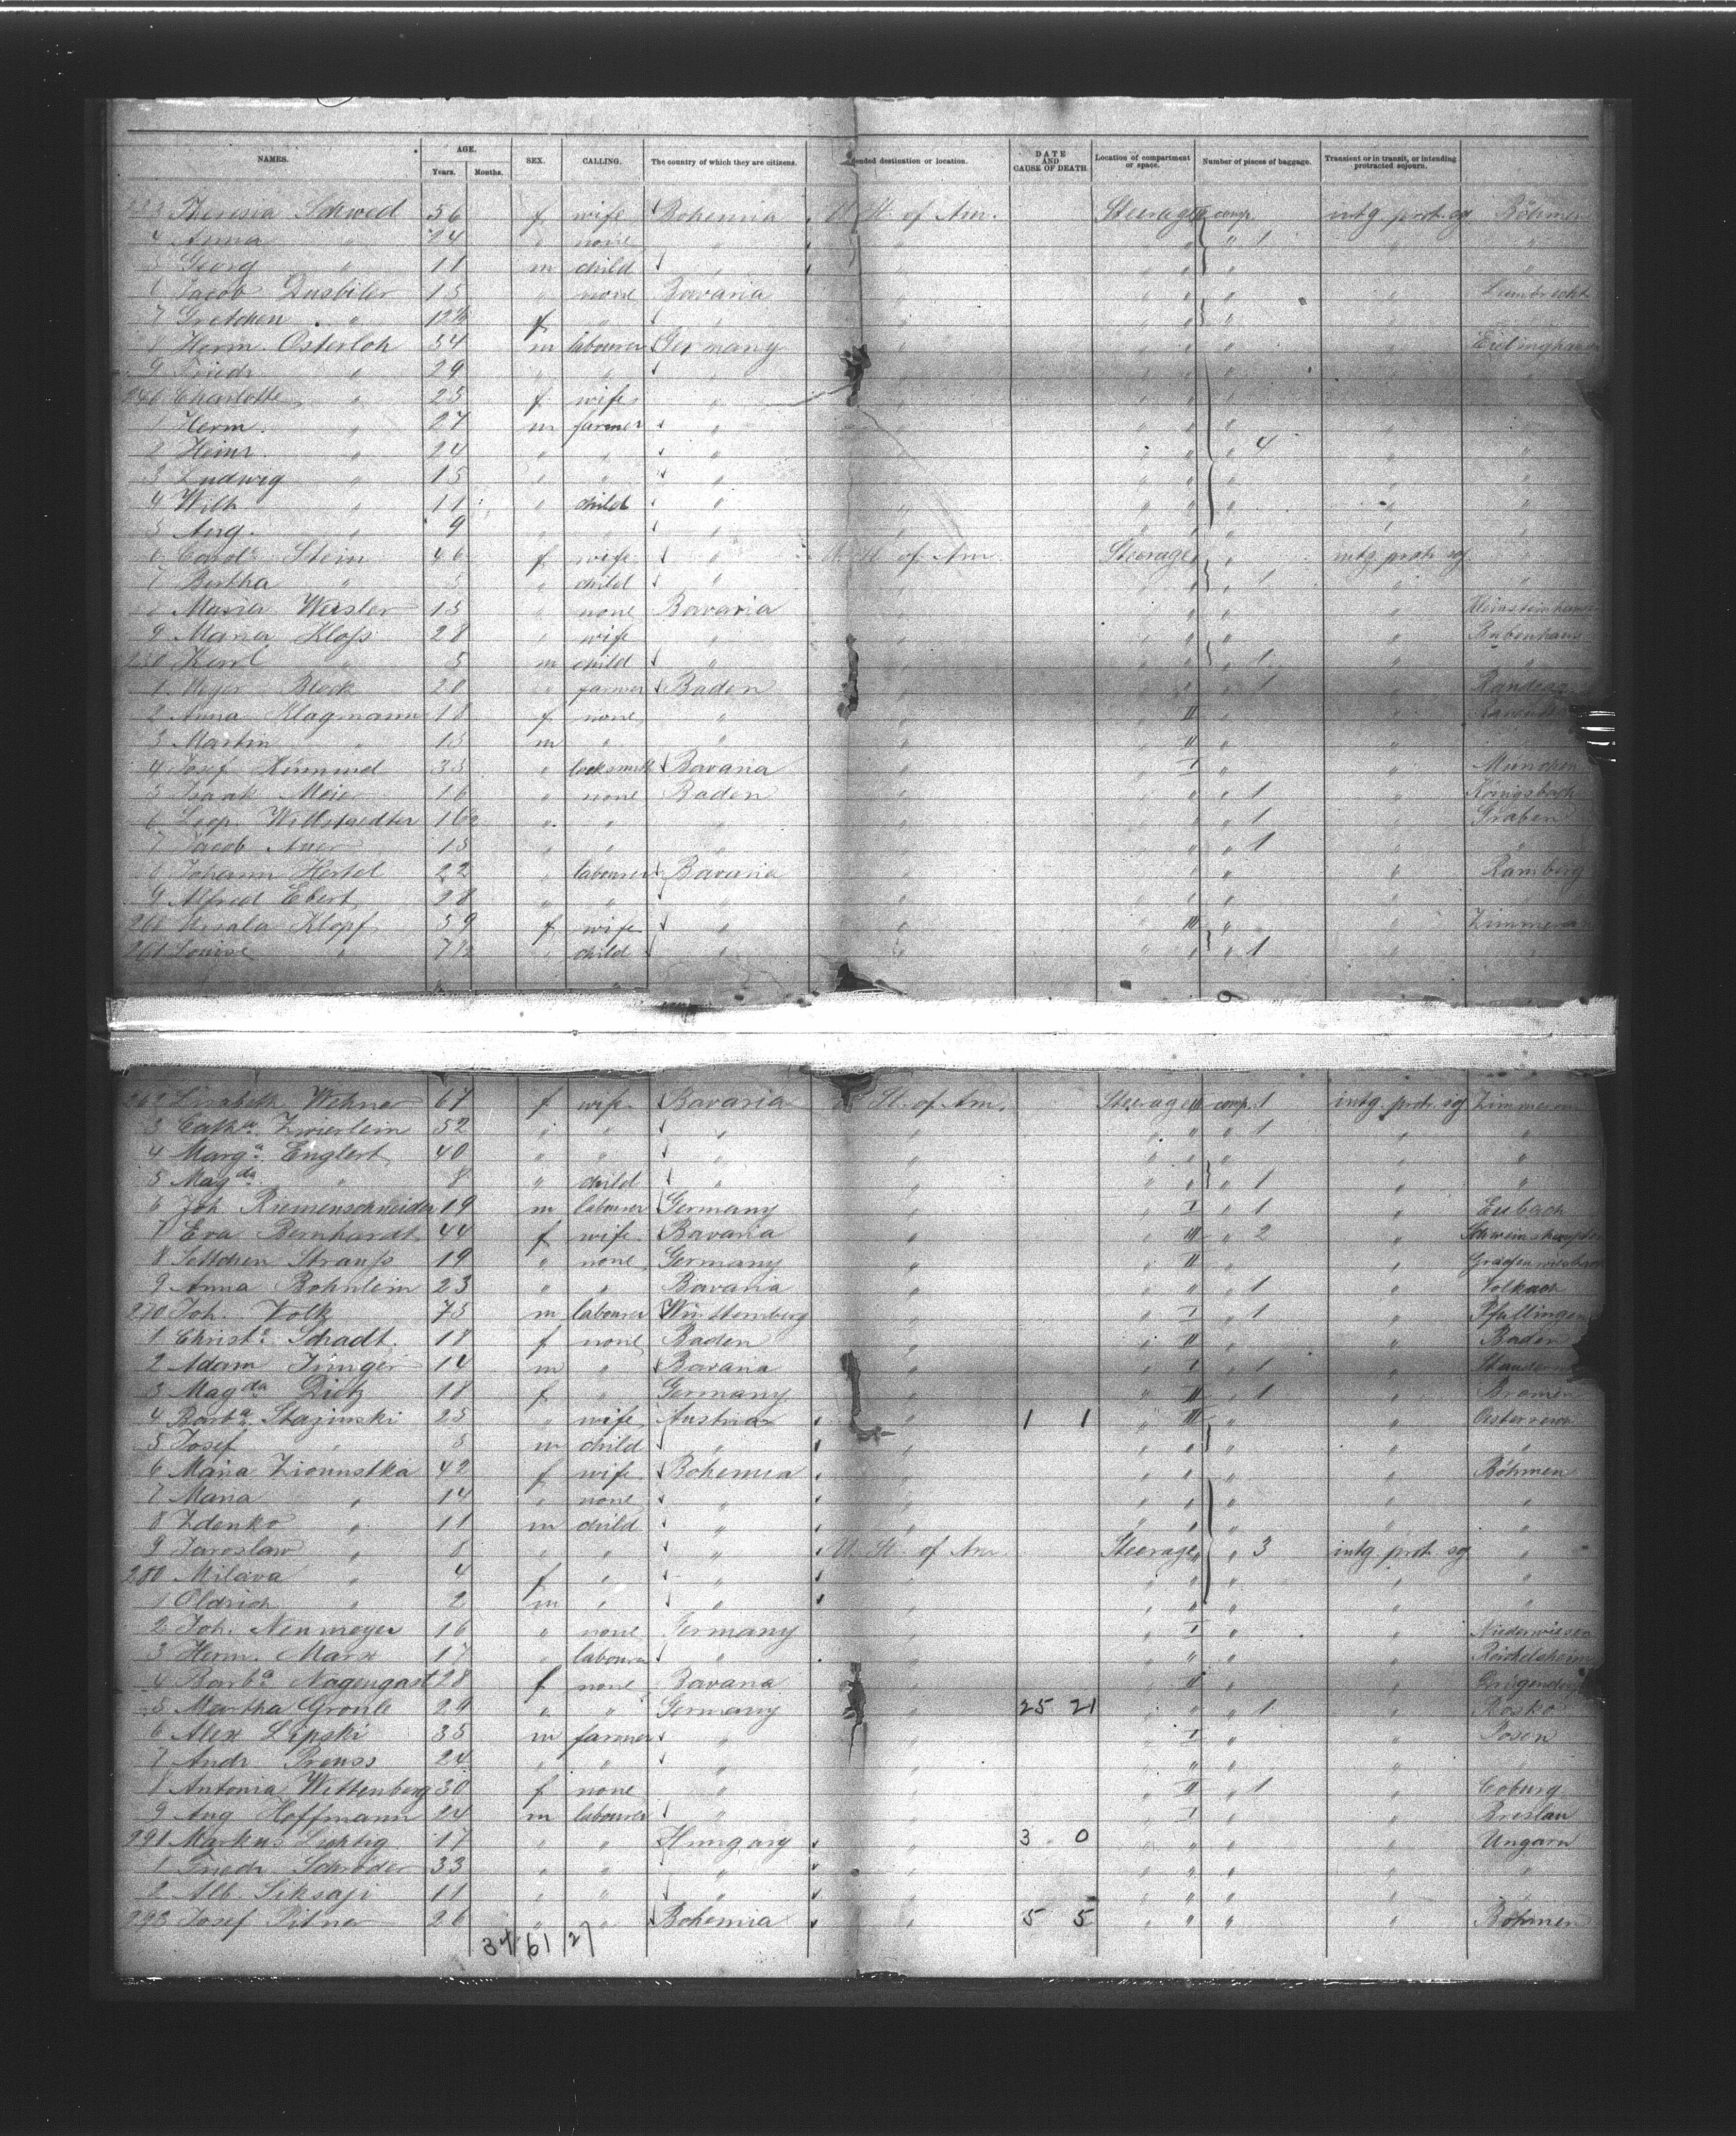 NAMES. AGE. Years. Months. SEX. CALLING. The country of which they are citizens. ended destination or location. DATE AND CAUSE OF DEATH Location of compartment or space. Number of pieces of baggage. Transient or in transit, or intending protracted sojourn.
Theresia Schwed 56 f wife Bohemia U. St. of Am. Steerage comp. intg prot. soj Böhmen
4 Anna " 24 " none " " " " 1 " "
5 Georg " 11 m child " " " " " "
6 Jacob 15 " none Bavaria " " " " Lambrecht
7 Gretchen " f " " " " " "
8 Herm. Osterloh 54 m labourer Germany " " " "
9 Friedr " 29 " " " " " " "
240 Charlotte " 25 f wife " " " " "
1 Herm. " 27 m farmer " " " " " "
2 Heinr. " 24 " " " " " " 4 " "
3 Ludwig " 15 " " " " " " " "
4 Wilh " 11 " child " " " " " "
5 Aug. " 9 " " " " " " " "
6 Carol. Stein 46 f wife " U. St. of Am. Steerage " intg prot. soj "
7 Bertha " 5 " child " " " " 1 " "
8 Maria Weisler 15 " none Bavaria " " " "
9 Maria Kloss 28 " wife " " " " " Babenhaus
250 Karl " 5 m child " " " " 1 " "
1 Meyer Block 20 " farmer Baden " " " 1 "
2 Anna Klagmann 18 f none " " II " "
3 Martin " 15 m " " " II " " "
4 Josef Kimmel 33 " locksmith Bavaria " I " " München
5 Isaak Meier 16 " none Baden " " " 1 " Königsbach
6 Leop. Willstaedter " " " " " " 1 " Graben
7 Jacob Auer 15 " " " " " " 1 " "
8 Johann Hertel 22 " labourer Bavaria " " " " Ramberg
9 Alfred Ebert 28 " " " " " " " "
260 Ursala Klopf 59 f wife " " III " "
261 Louise " " child " " " " 1 " "
262 Lisabeth Wehner 67 f wife Bavaria U. St. of Am. Steerage III comp. 1 intg prot. soj
3 Cathª. Zwierlein 52 " " " " " " 1 " "
4 Margª. Englert 40 " " " " " " " "
5 Magda " 8 " child " " " " 1 " "
6 Joh. Riemenschneider 19 m labourer Germany " I " 1 " Eubach
7 Eva Bernhardt 44 f wife Bavaria " III " 2 "
8 Settchen Strauss 19 " none Germany " II " "
9 Anna Bohnlein 23 " " Bavaria " " " 1 " Volkach
270 Joh. Volk 73 m labourer Württemberg " I " 1 " Pfullingen
1 Christª. Schadt 18 f none Baden " II " " Baden
2 Adam Jünger 14 m " Bavaria " I " 1 "
3 Magda Dietz 18 f " Germany " II " 1 " Bremen
4 Barbª. Stazinski 25 " wife Austria " 1 1 III " " Oesterreich
5 Josef " 5 m child " " " " " "
6 Maria Ziounstka 42 f wife Bohemia " " " " Böhmen
7 Maria " 14 " none " " " " " "
8 Zdenko " 11 m child " " " " " "
9 Jaroslaw " 8 " " " U. St. of Am. Steerage " 3 intg prot. soj "
280 Milava " 4 f " " " " " " "
1 Oldrich " 2 m " " " " " " "
2 Joh. Neumeyer 16 " none Germany " I " " Niederwiesen
3 Herm. Marx 17 " labourer " " " " " Reichelsheim
4 Barbª Nagengast 28 f none Bavaria " II " "
5 Martha Gronle 29 " " Germany " 25 21 " " 1 " Rosko
6 Alex Lipski 35 m farmer " " I " " Posen
7 Andr Preuss 24 " " " " " " " "
8 Antonia Wittenberg 30 f none " " II " 1 " Coburg
9 Aug Hoffmann 24 m labourer " " I " " Breslau
291 Markus Lichtig 17 " " Hungary " 3 0 " " " Ungarn
1 Friedr Schröder 33 " " " " " " " "
2 Alb. Siksaji 11 " " " " " " " "
293 Josef Pitner 26 " " Bohemia " 5 5 " " " Böhmen
34 61 27